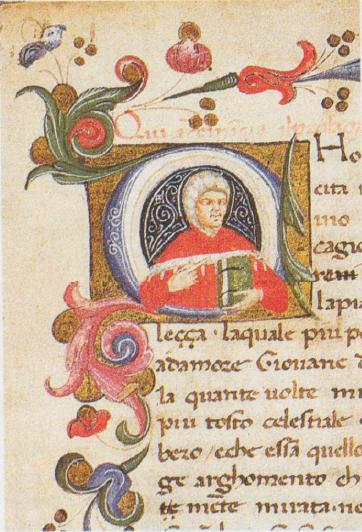 Qui
Ho
cita
ino
cagio
rem
lapia
lecça · laquale piu po
adamore Giouane d
la quante uolte mi
piu tosto celestiale
bero / eche essa quello
ge arghomento ch
te niete mirata · no